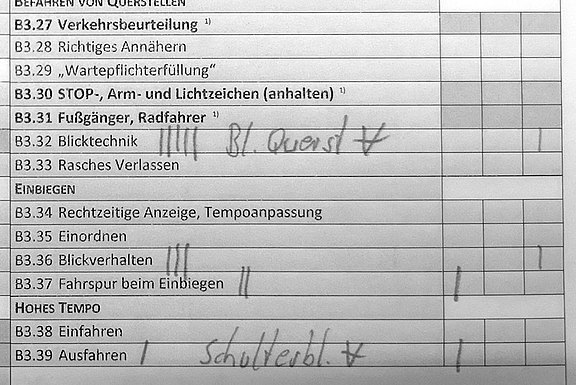 BEFAHREN VON QUERSTELLEN
B3.27 Verkehrsbeurteilung 1)
B3.28 Richtiges Annähern
B3.29 „Wartepflichterfüllung“
B3.30 STOP-, Arm- und Lichtzeichen (anhalten) 1)
B3.31 Fußgänger, Radfahrer 1)
B3.32 Blicktechnik ||||| Bl. Querst |
B3.33 Rasches Verlassen
EINBIEGEN
B3.34 Rechtzeitige Anzeige, Tempoanpassung
B3.35 Einordnen
B3.36 Blickverhalten ||| |
B3.37 Fahrspur beim Einbiegen || |
HOHES TEMPO
B3.38 Einfahren
B3.39 Ausfahren | Schulterbl. |